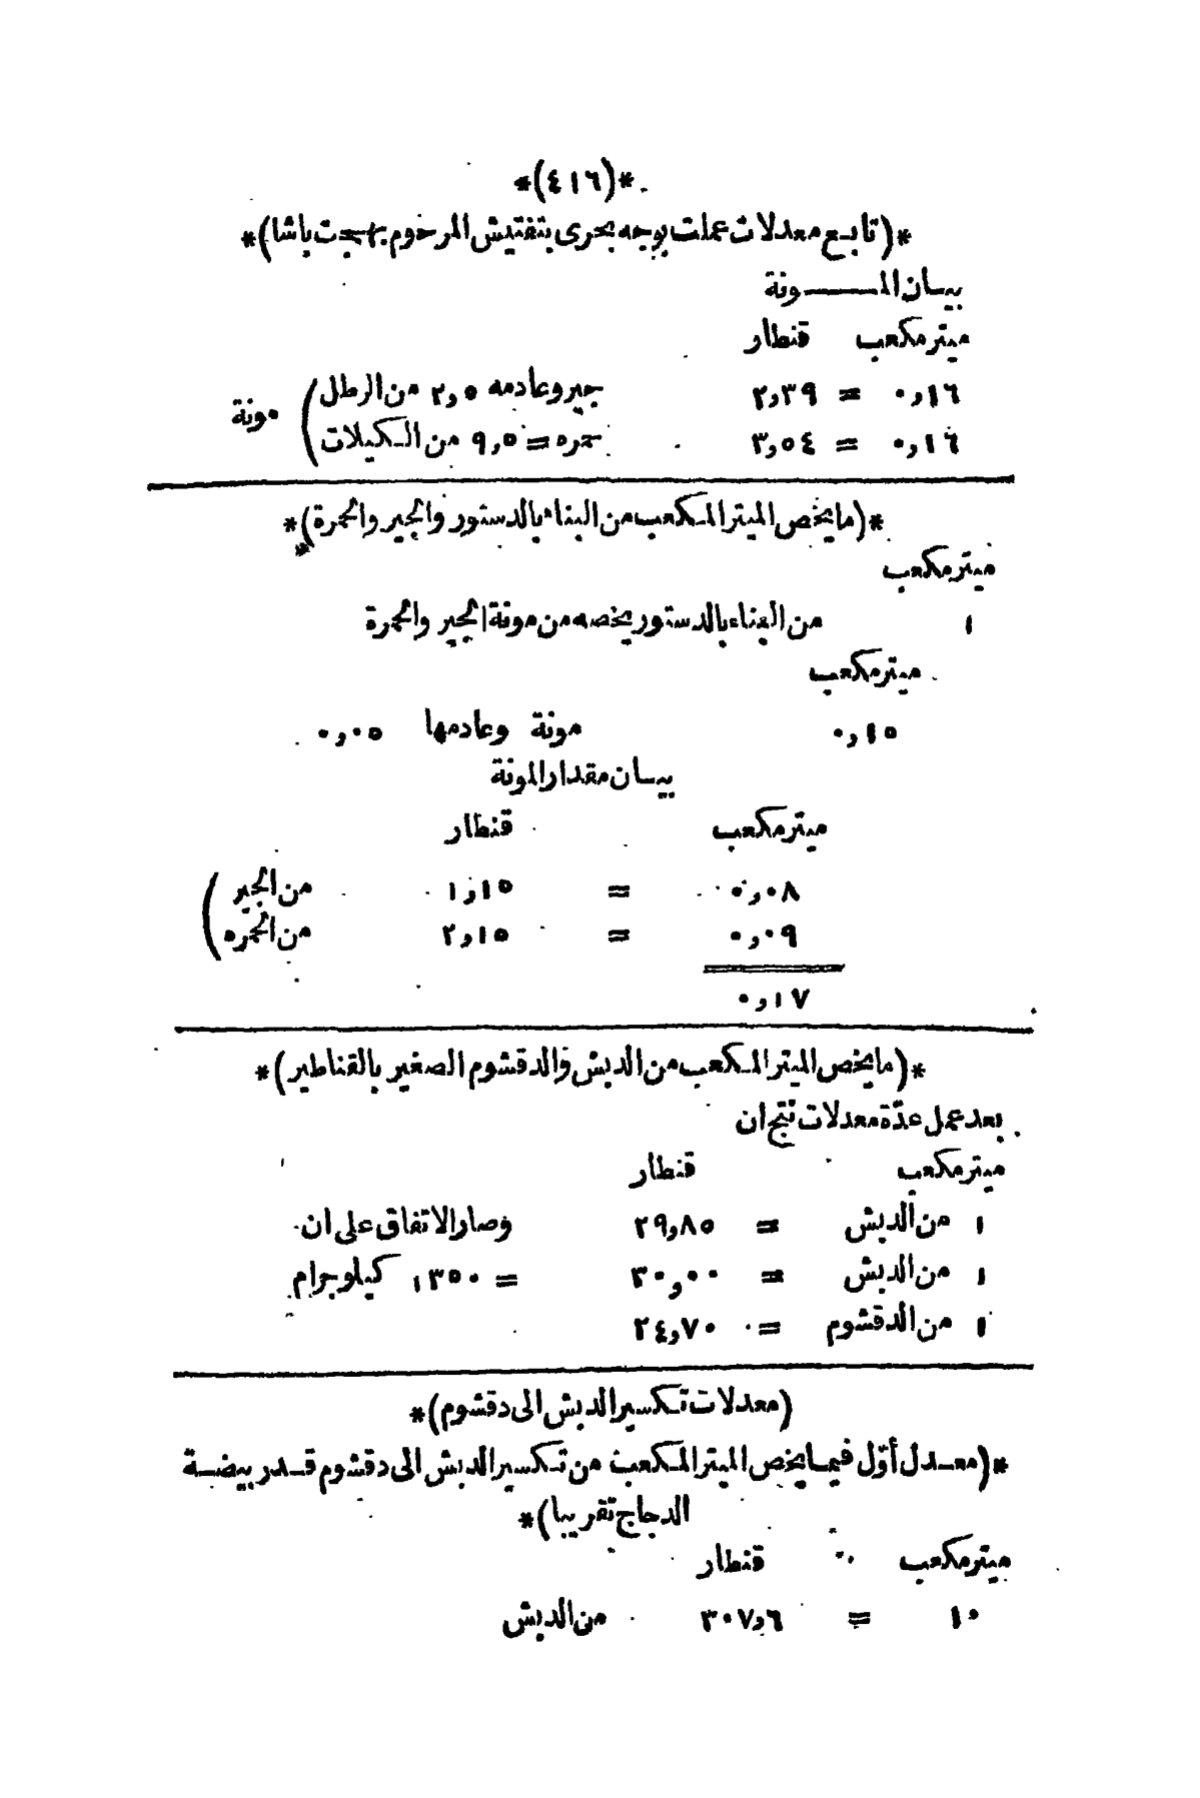 *(٤١٦)*
*(تابع معدلات عملت بوجه بحرى بتفتيش المرحوم بهجت باشا)*
بيان المـــونة
ميتر مكعب قنطار
٠٫١٦ = ٢٫٣٩ جير وعادمه ٢٫٥ من الرطل
٠٫١٦ = ٣٫٥٤ حمره = ٩٫٥ من الكيلات) مونة
*(ما يخص الميتر المكعب من البناء بالدستور والجير والحمرة)*
ميتر مكعب
١ من البناء بالدستور يخصه من مونة الجير والحمرة
ميتر مكعب
٠٫١٥ مونة وعادمها ٠٫٠٥
بيان مقدار المونة
ميتر مكعب قنطار
٠٫٠٨ = ١٫١٥ من الجير
٠٫٠٩ = ٢٫١٥ من الحمره)
٠٫١٧
*(ما يخص الميتر المكعب من الدبش والدقشوم الصغير بالقناطير)*
بعد عمل عدّة معدلات نتج ان
ميتر مكعب قنطار
١ من الدبش = ٢٩٫٨٥ وصار الاتفاق على ان
١ من الدبش = ٣٠٫٠٠ = ١٣٥٠ كيلوجرام
١ من الدقشوم = ٢٤٫٧٠
(معدلات تكسير الدبش الى دقشوم)*
*(معدل أوّل فيما يخص الميتر المكعب من تكسير الدبش الى دقشوم قدر بيضة
الدجاج تقريبا)*
ميتر مكعب قنطار
١٠ = ٣٠٧٫٦ من الدبش